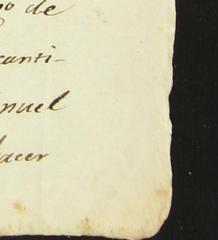 po de
canti-
nuel
hacer